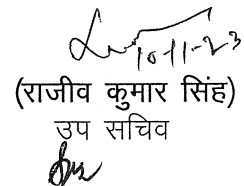 10-11-23
(राजीव कुमार सिंह)
उप सचिव